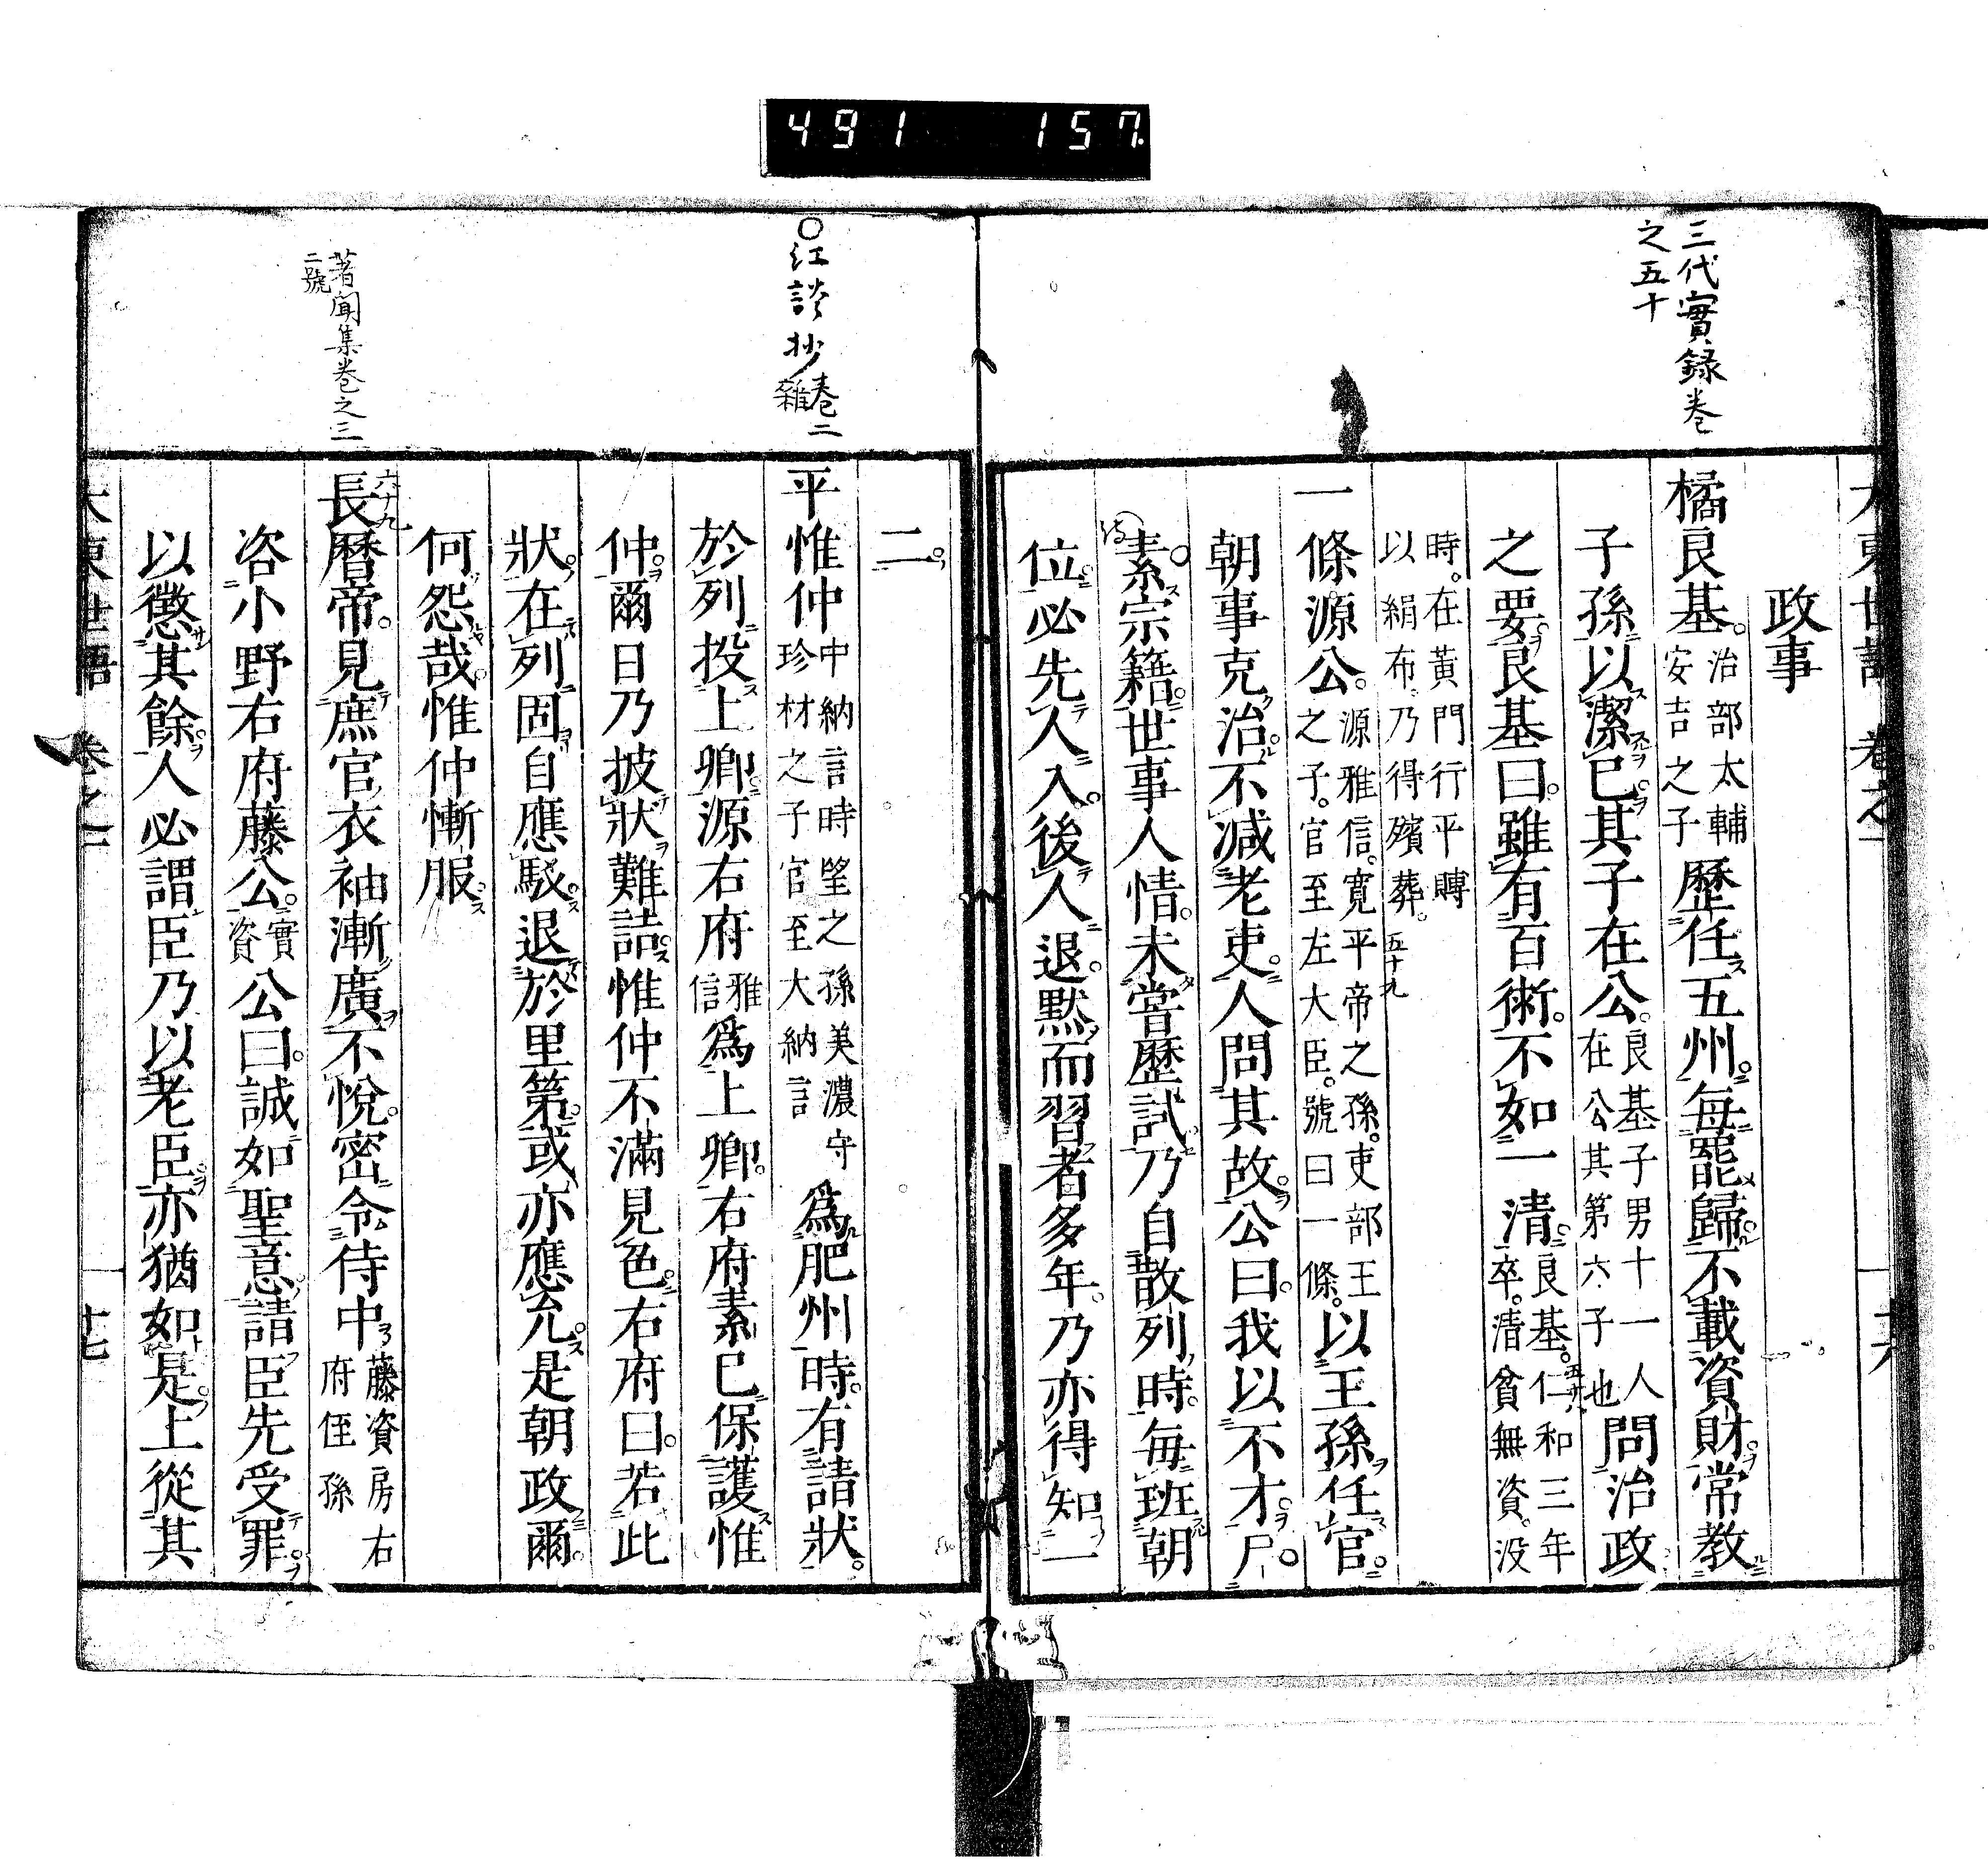 491 157
三代實録卷
之五十
大東世語 卷之一
政事
橘良基。治部太輔安吉之子歷任五州。每罷歸。不載資財。常教
子孫以潔己。其子在公。良基子男十一人在公其第六子也問治政
之要。良基曰。雖有百術。不如一清。良基。仁和三年卒。清貧無資。没
時。在黃門行平賻以絹布。乃得殯葬。五十九
一條源公。源雅信。寛平帝之孫。吏部王之子。官至左大臣。號曰一條。以王孫任官。
朝事克治。不減老吏。人問其故。公曰。我以不才。尸
素。宗籍。世事人情。未嘗歷試。乃自散列時。每班朝
位。必先人入。後人退。默而習者多年。乃亦得知一
二。
〇江談抄卷二雜
平惟仲中納言時望之孫美濃守珍材之子官至大納言爲肥州時。有請狀。
於列投上卿。源右府雅信爲上卿。右府素已保護惟
仲。爾日乃披狀難詰。惟仲不滿見色。右府曰。若此
狀。在列固自應駁。退於里第。或亦應允。是朝政爾。
何怨哉。惟仲慚服。
著聞集卷之三
二號
六十九
長曆帝。見庶官衣袖漸廣。不悅。密令侍中藤資房右府侄孫
咨小野右府藤公。實資公曰。誠如聖意。請臣先受罪。
以懲其餘。人必謂臣乃以老臣。亦猶如是。上從其
大東世語 卷之一 十七